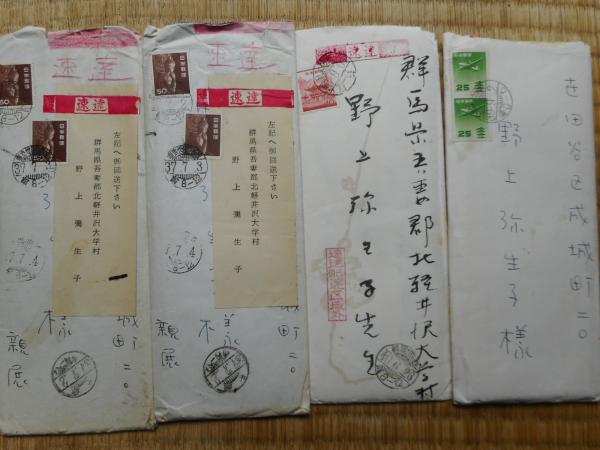 速達
50
日本郵便
速達
50
日本郵便
37.7.3
左記へ御回送下さい
群馬県吾妻郡北軽井沢大学村
野上彌生子
7.4
様
城町二〇
親展
速達
50
日本郵便
速達
50
日本郵便
37.7.3
左記へ御回送下さい
群馬県吾妻郡北軽井沢大学村
野上彌生子
7.4
様
城町二〇
親展
速達
群馬県吾妻郡北軽井沢大学村
野上弥生子先生
25
25
世田谷区成城町二〇
野上弥生子様